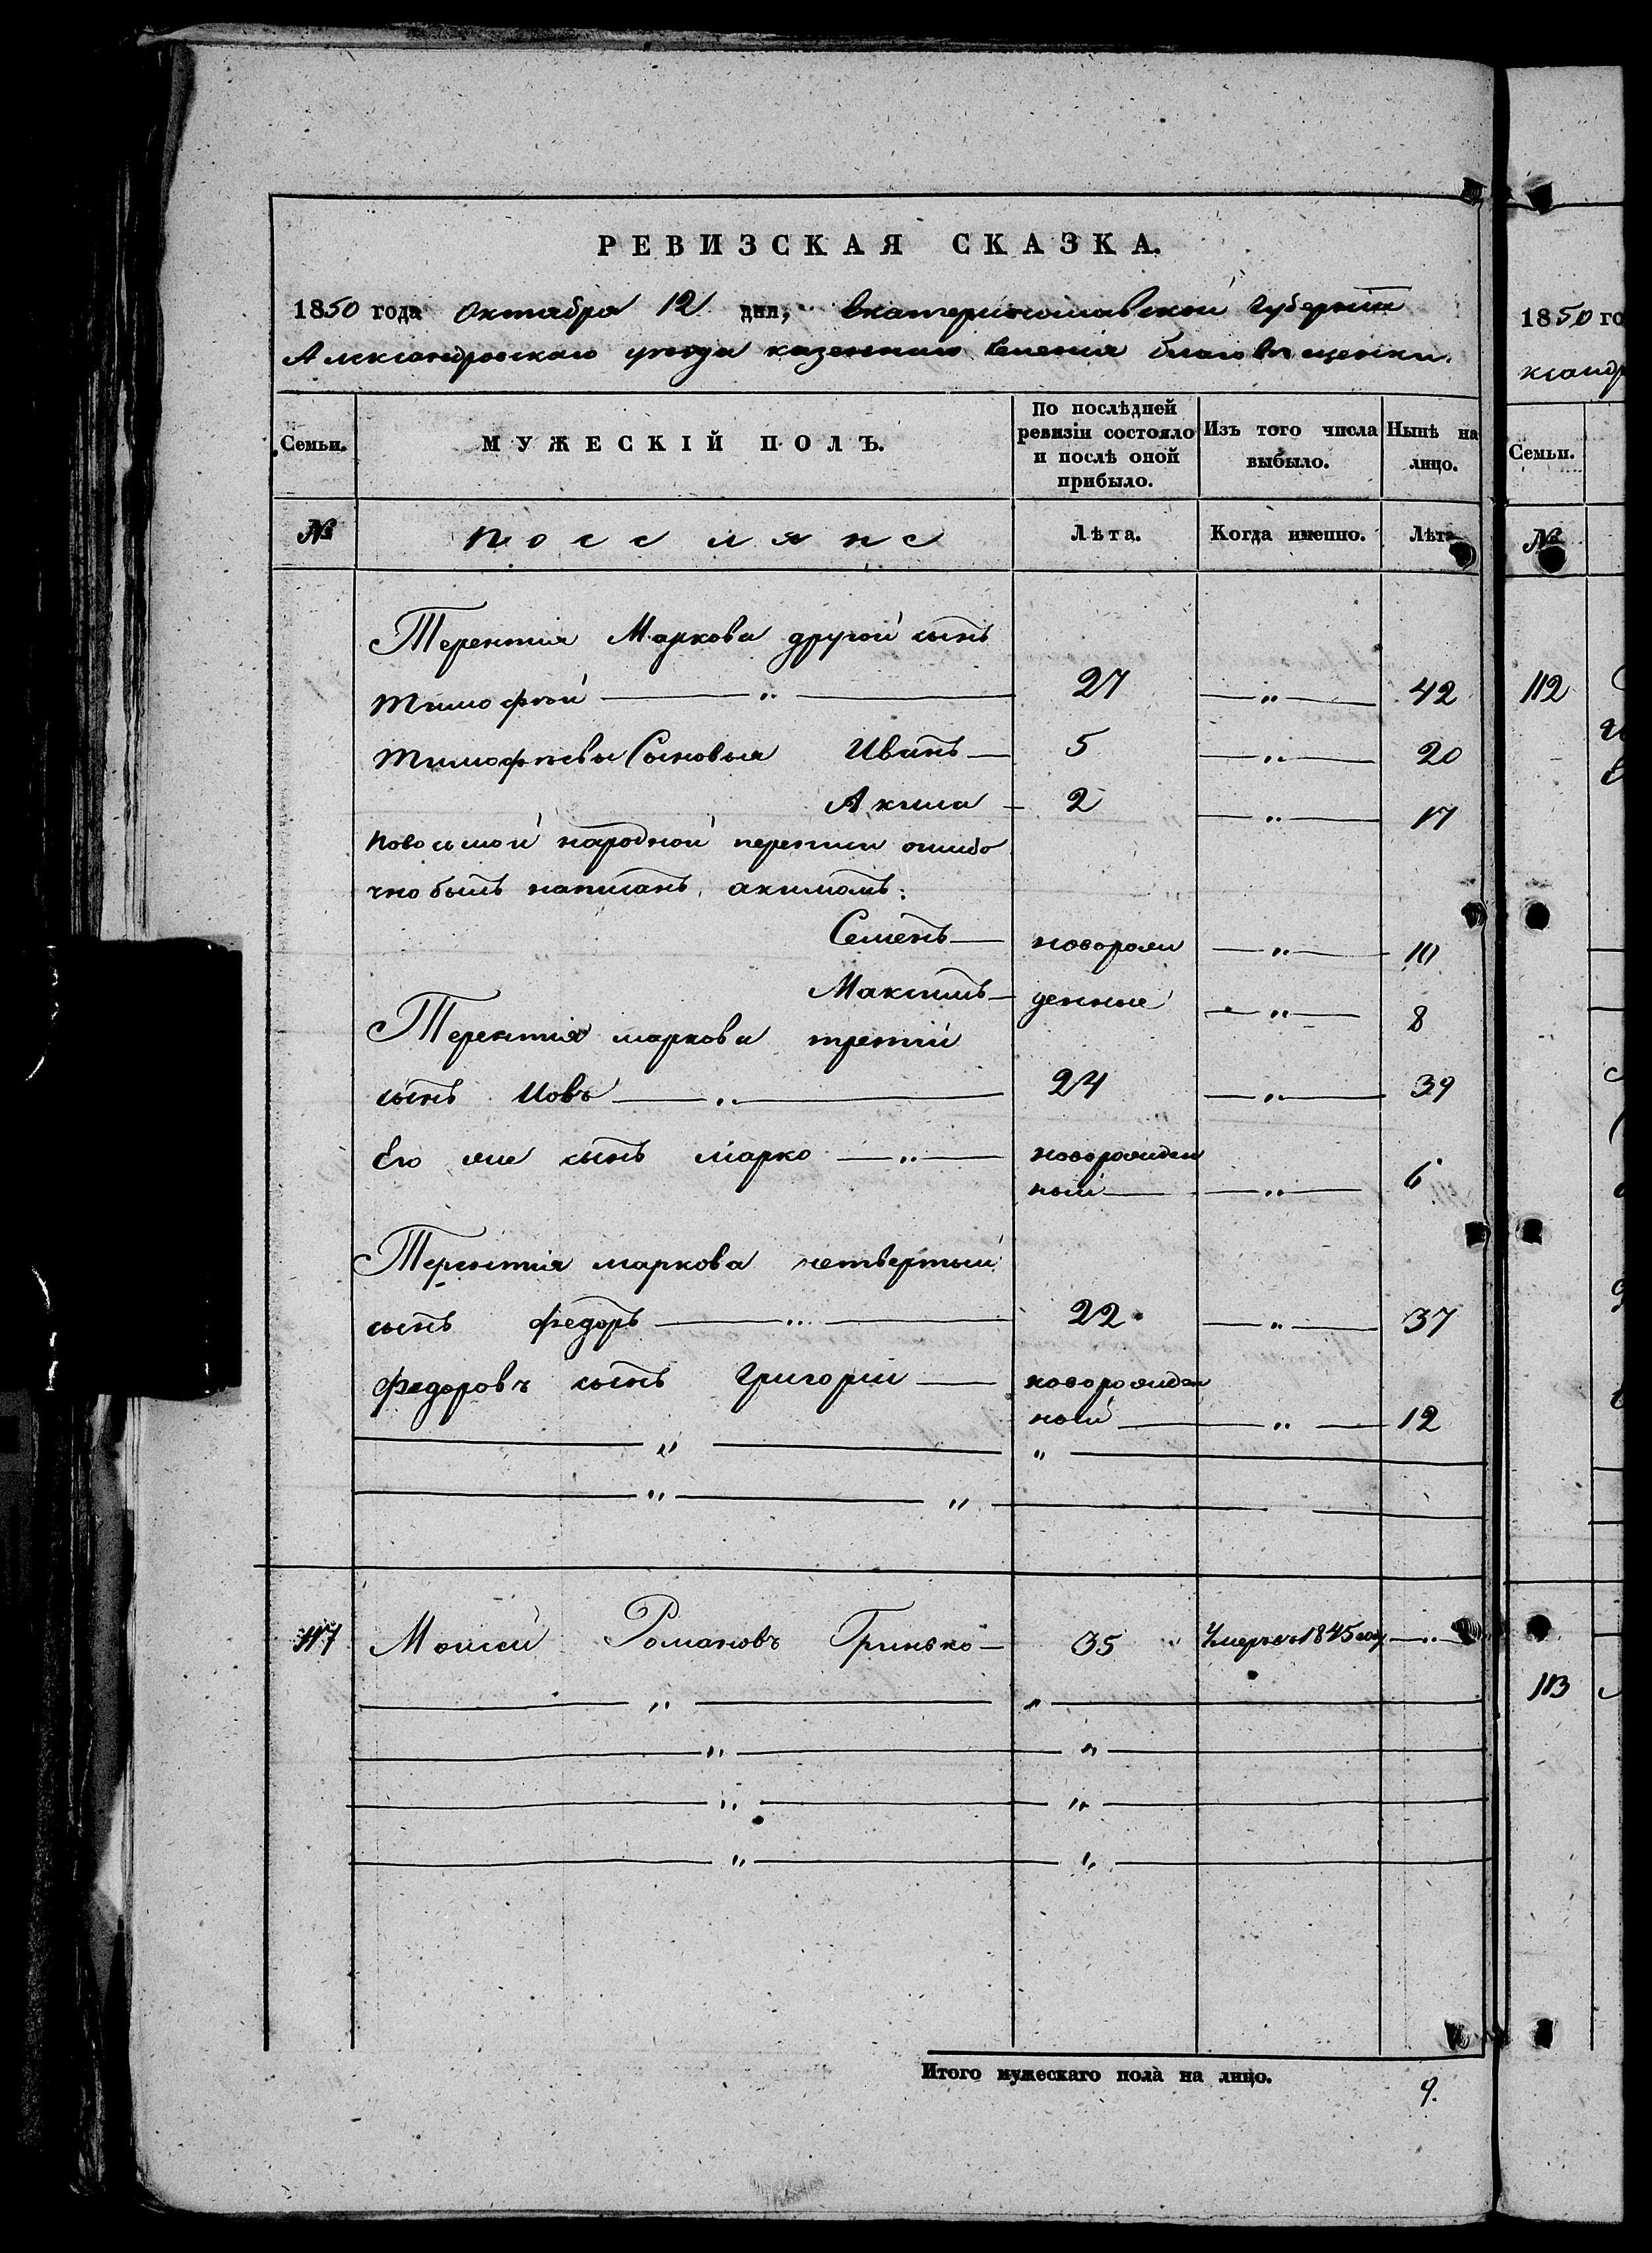 РЕВИЗСКАЯ СКАЗКА.
1850 года Октября 12 дня, Екатеринославской Губерніи
Александровскаго уезда казеннаго селенія благовѣщенки.
Семьи. МУЖЕСКІЙ ПОЛЪ. По послѣдней ревизіи состояло и послѣ оной прибыло. Изъ того числа выбыло. Нынѣ на лицо.
№ Поселяне Лѣта. Когда именно. Лѣта
Терентія Маркова другой сынъ
тимофѣй — " — 27 — " — 42
тимофѣевы Сыновья Иванъ — 5 — " — 20
Акима — 2 — " — 17
по восьмой народной переписи ошибо
чно былъ написанъ акимомъ:
Семенъ — новорож — " — 10
Максимъ — денные — " — 8
Терентія маркова третій
сынъ Иовъ — " — 24 — " — 39
Его же сынъ марко — " — новорожден
ный — " — 6
Терентія маркова четвертый
сынъ федоръ — " — 22 — " — 37
федоровъ сынъ Григорій — новорожден
ный — " — 12
— " — " —
— " — " —
Моисей Романовъ Гринько — 35 Умеръ в 1845 году — " —
— " — " —
— " — " —
— " — " —
— " — " —
Итого мужескаго пола на лицо. 9.
1850 го
ксандр
Семьи.
№
112
113